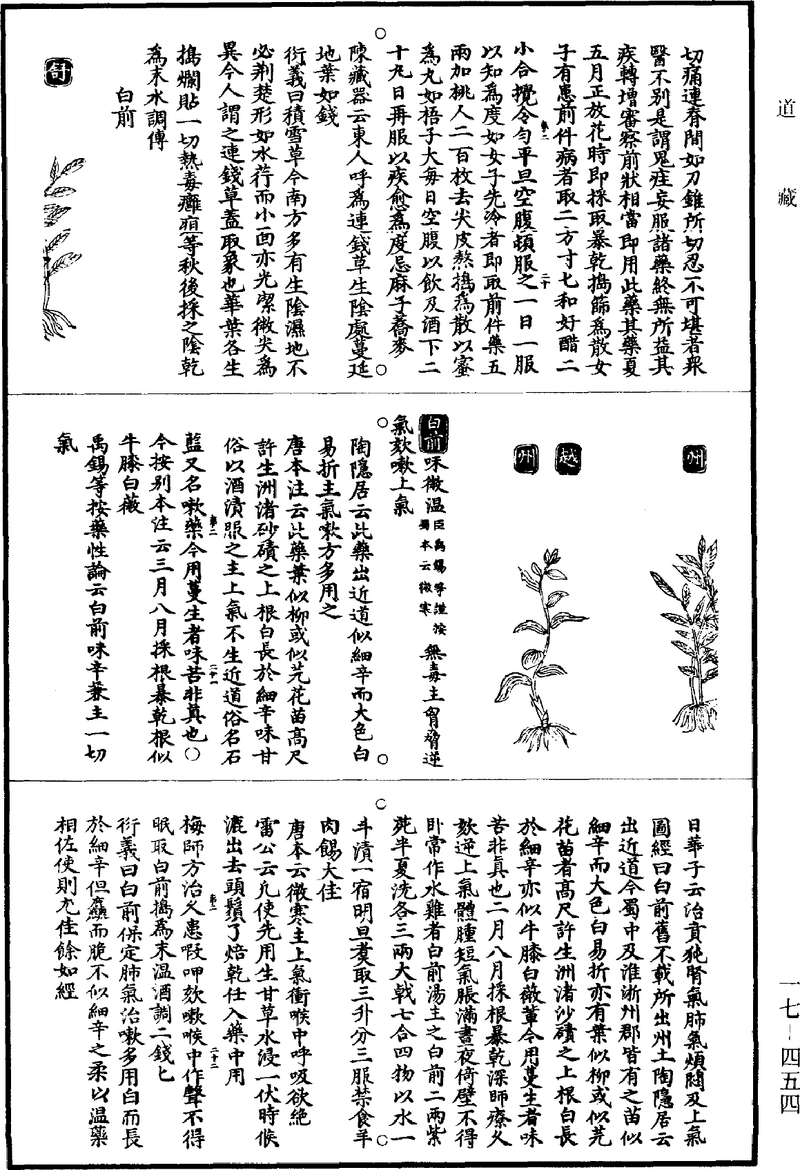 道藏
一七—四五四
切痛連脊間如刀錐所切忍不可堪者衆
醫不别是謂鬼疰妄服諸藥終無所益其
疾轉增審察前狀相當即用此藥其藥夏
五月正放花時即採取暴乾搗篩爲散女
子有患前件病者取二方寸匕和好醋二
小合攪令勻平旦空腹頓服之一日一服
以知爲度如女子先冷者即取前件藥五
兩加桃人二百枚去尖皮熬搗爲散以蜜
爲丸如梧子大每日空腹以飲及酒下二
十丸日再服以疾愈爲度忌麻子蕎麥
陳藏器云東人呼爲連錢草生陰處蔓延
地葉如錢
衍義曰積雪草今南方多有生陰濕地不
必荆楚形如水荇而小面亦光潔微尖爲
異今人謂之連錢草蓋取象也華葉各生
擣爛貼一切熱毒癰疽等秋後採之陰乾
爲末水調傅
白前
舒
州
越
州
白前味微温臣禹錫等謹按蜀本云微寒無毒主胷脅逆
氣欬嗽上氣
陶隱居云此藥出近道似細辛而大色白
易折主氣嗽方多用之
唐本注云此藥葉似柳或似芫花苗高尺
許生洲渚砂磧之上根白長於細辛味甘
俗以酒漬服之主上氣不生近道俗名石
藍又名嗽藥今用蔓生者味苦非真也○
今按别本注云二月八月採根暴乾根似
牛膝白薇
禹錫等按藥性論云白前味辛兼主一切
氣
日華子云治賁㹠腎氣肺氣煩悶及上氣
圖經曰白前舊不載所出州土陶隱居云
出近道今蜀中及淮浙州郡皆有之苗似
細辛而大色白易折亦有葉似柳或似芫
花苗者高尺許生洲渚沙磧之上根白長
於細辛亦似牛膝白薇輩今用蔓生者味
苦非真也二月八月採根暴乾深師療久
欬逆上氣體腫短氣脹滿晝夜倚壁不得
卧常作水雞者白前湯主之白前二兩紫
菀半夏洗各三兩大戟七合四物以水一
斗漬一宿明旦煑取三升分三服禁食羊
肉餳大佳
唐本云微寒主上氣衝喉中呼吸欲絶
雷公云凡使先用生甘草水浸一伏時候
漉出去頭鬚了焙乾任入藥中用
梅師方治久患㗜呷欬嗽喉中作聲不得
眠取白前搗爲末温酒調二錢匕
衍義曰白前保定肺氣治嗽多用白而長
於細辛但麤而脆不似細辛之柔以温藥
相佐使則尤佳餘如經